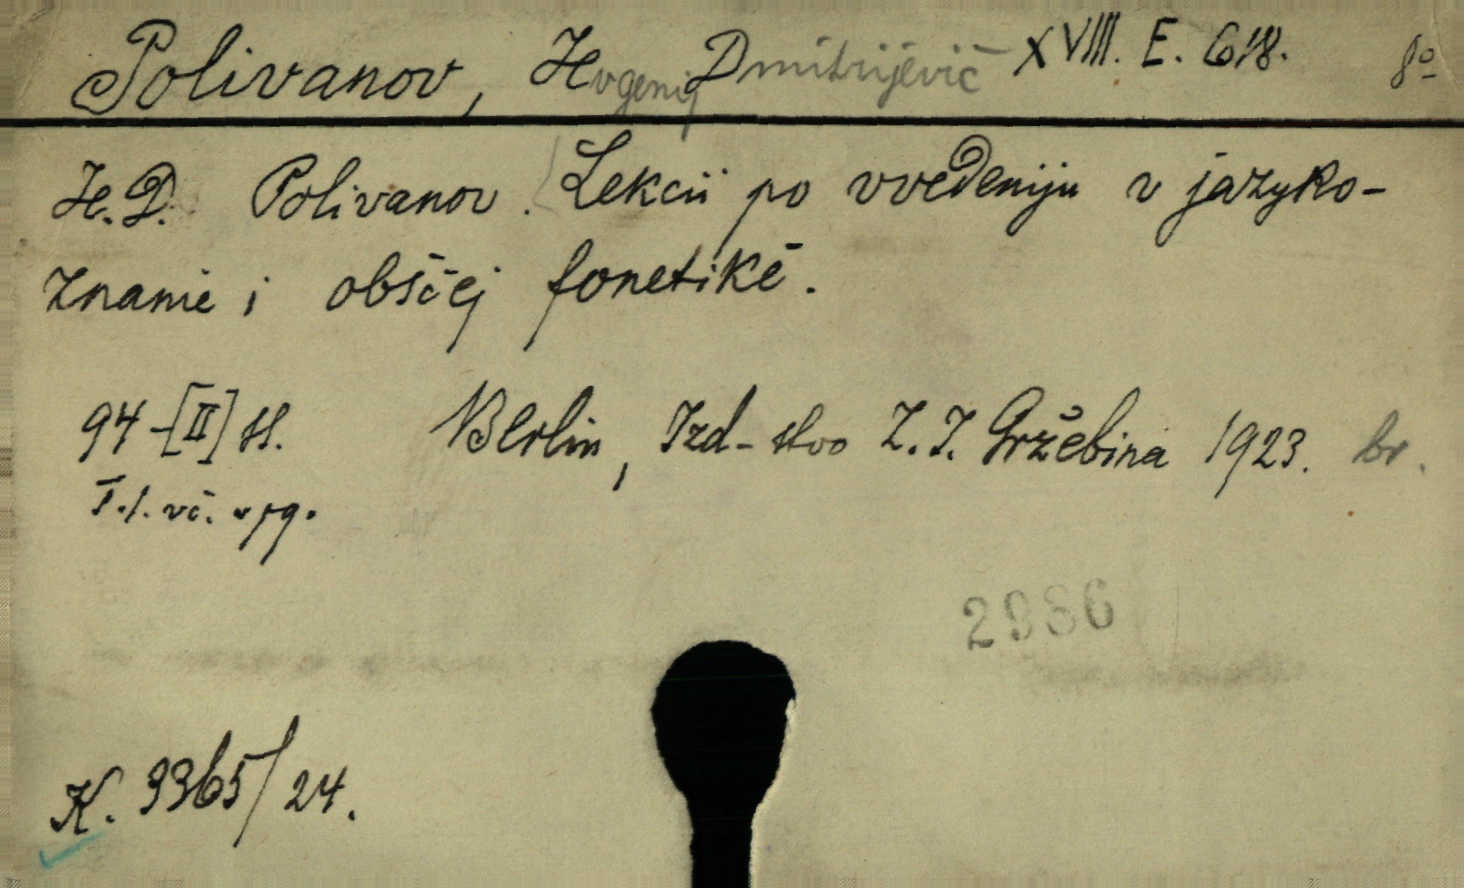 Polivanov, Jevgenij Dmitrijevič XVIII. E. 618. 8º
Je. D. Polivanov. Lekcii po vvedeniju v jazyko-
znanie i obščej fonetikě.
94-[II] st. Berlin, Izd-stvo Z. I. Gržebina 1923. br.
T. l. vč. v pg.
2986
K. 3365/24.